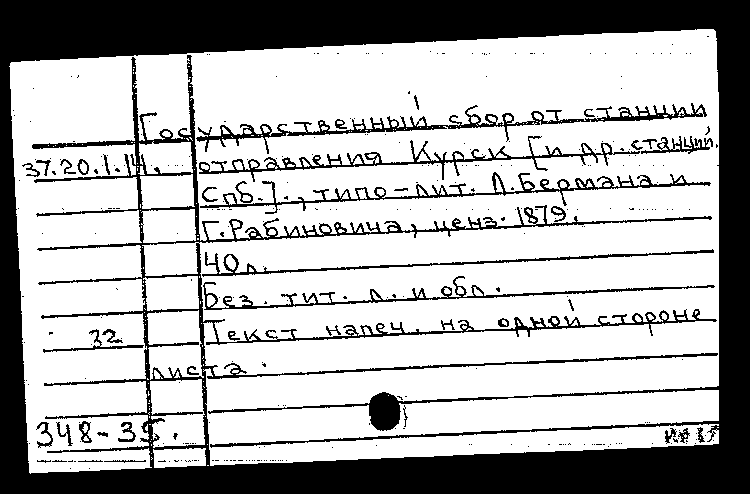 Государственный сбор от станции
37.20.1.14. отправления Курск [и др. станций.
Спб.]., типо-лит. Л.Бермана и
Г.Рабиновича, ценз. 1879.
40 л.
Без. тит. л. и обл.
32 Текст напеч. на одной стороне
листа.
348-35.